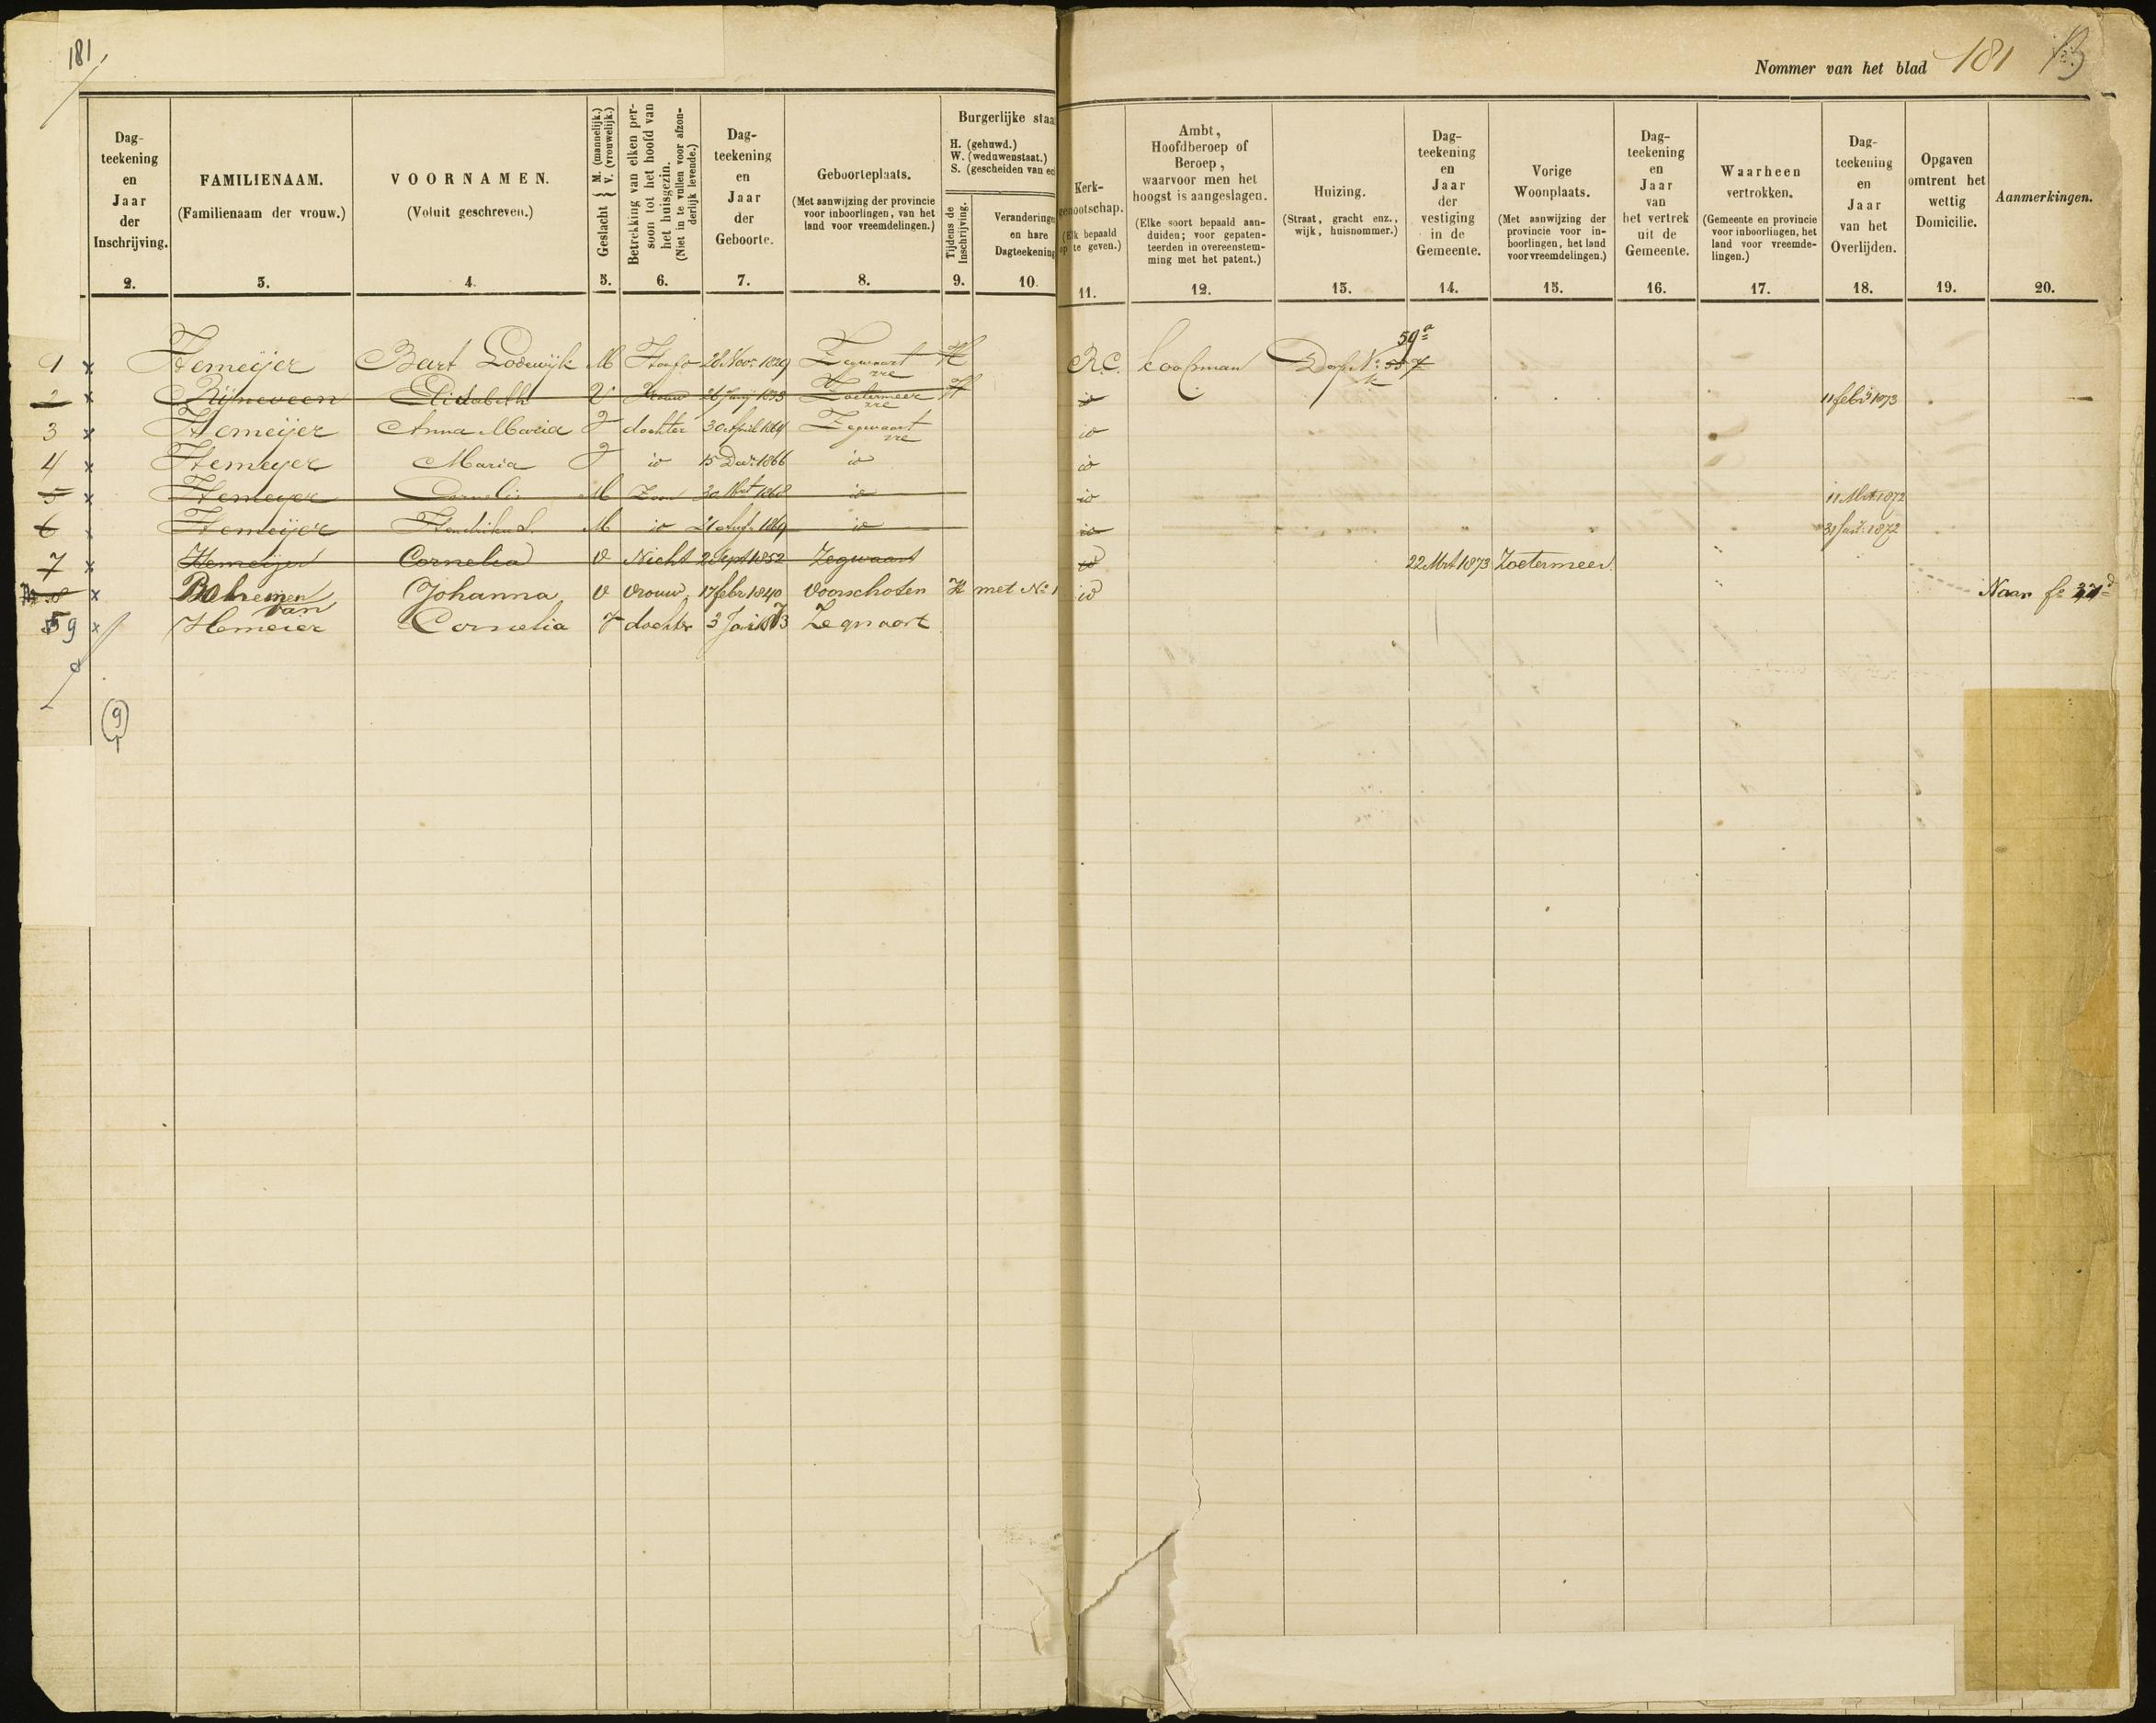 181
Nommer van het blad 181
Dag-teekening en Jaar der Inschrijving.
FAMILIENAAM. (Familienaam der vrouw.)
VOORNAMEN. (Voluit geschreven.)
Geslacht { M. (mannelijk.) V. (vrouwelijk.)
Betrekking van elken per-soon tot het hoofd van het huisgezin. (Niet in te vullen voor afzon-derlijk levende.)
Dag-teekening en Jaar der Geboorte.
Geboorteplaats. (Met aanwijzing der provincie voor inboorlingen, van het land voor vreemdelingen.)
Burgerlijke staa
H. (gehuwd.)
W. (weduwenstaat.)
S. (gescheiden van ec
Tijdens de Inschrijving.
Veranderinge en hare Dagteekening
Kerk-enootschap. (Elk bepaald op te geven.)
Ambt, Hoofdberoep of Beroep, waarvoor men het hoogst is aangeslagen. (Elke soort bepaald aan-duiden; voor gepaten-teerden in overeenstem-ming met het patent.)
Huizing. (Straat, gracht enz., wijk, huisnommer.)
Dag-teekening en Jaar der vestiging in de Gemeente.
Vorige Woonplaats. (Met aanwijzing der provincie voor in-boorlingen, het land voor vreemdelingen.)
Dag-teekening en Jaar van het vertrek uit de Gemeente.
Waarheen vertrokken. (Gemeente en provincie voor inboorlingen, het land voor vreemde-lingen.)
Dag-teekening en Jaar van het Overlijden.
Opgaven omtrent het wettig Domicilie.
Aanmerkingen.
2. 3. 4. 5. 6. 7. 8. 9. 10. 11. 12. 13. 14. 15. 16. 17. 18. 19. 20.
1 x Hemeijer Bart Lodewijk M Hoofd 28 Nov: 1829 Zegwaart H R.C. koopman Dorp No 59a
2 x Rijneveen Elisabeth V Vrouw Zoetermeer H io 11 feb: 1873
3 x Hemeijer Anna Maria V dochter 30 April 1864 Zegwaart io
4 x Hemeyer Maria V io 15 Dec: 1866 io io
5 x Hemeyer Cornelis M Zoon 30 Mrt 1868 io io 11 Mrt 1872
6 x Hemeijer Hendrikus M io 1869 io io 31 Jan: 1872
7 x Hemeijer Cornelia V Nicht 2 Sept 1852 Zegwaart io 22 Mrt 1873 Zoetermeer
8 x Bohemen van Johanna V vrouw 17 feb: 1840 Voorschoten H met No 1 io Naar fo
9 x Hemeier Cornelia V dochter 3 Zegwaart
9